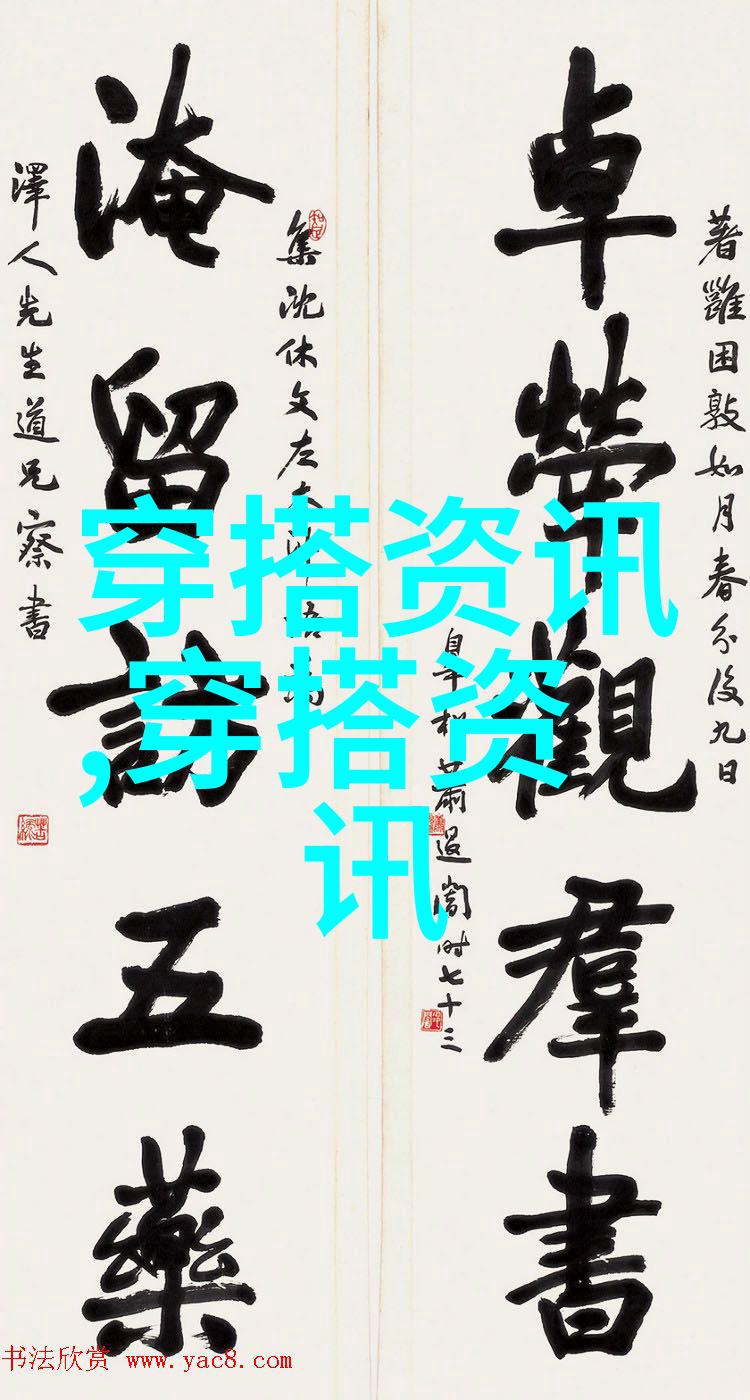 著雝困敦如月春分後九日
卓犖觀羣書
蕭退闇时七十三
集沈休文左太
淹留訪五藥
澤人先生道兄察書
穿搭资讯
,穿搭资
讯
书法欣赏 www.yac8.com